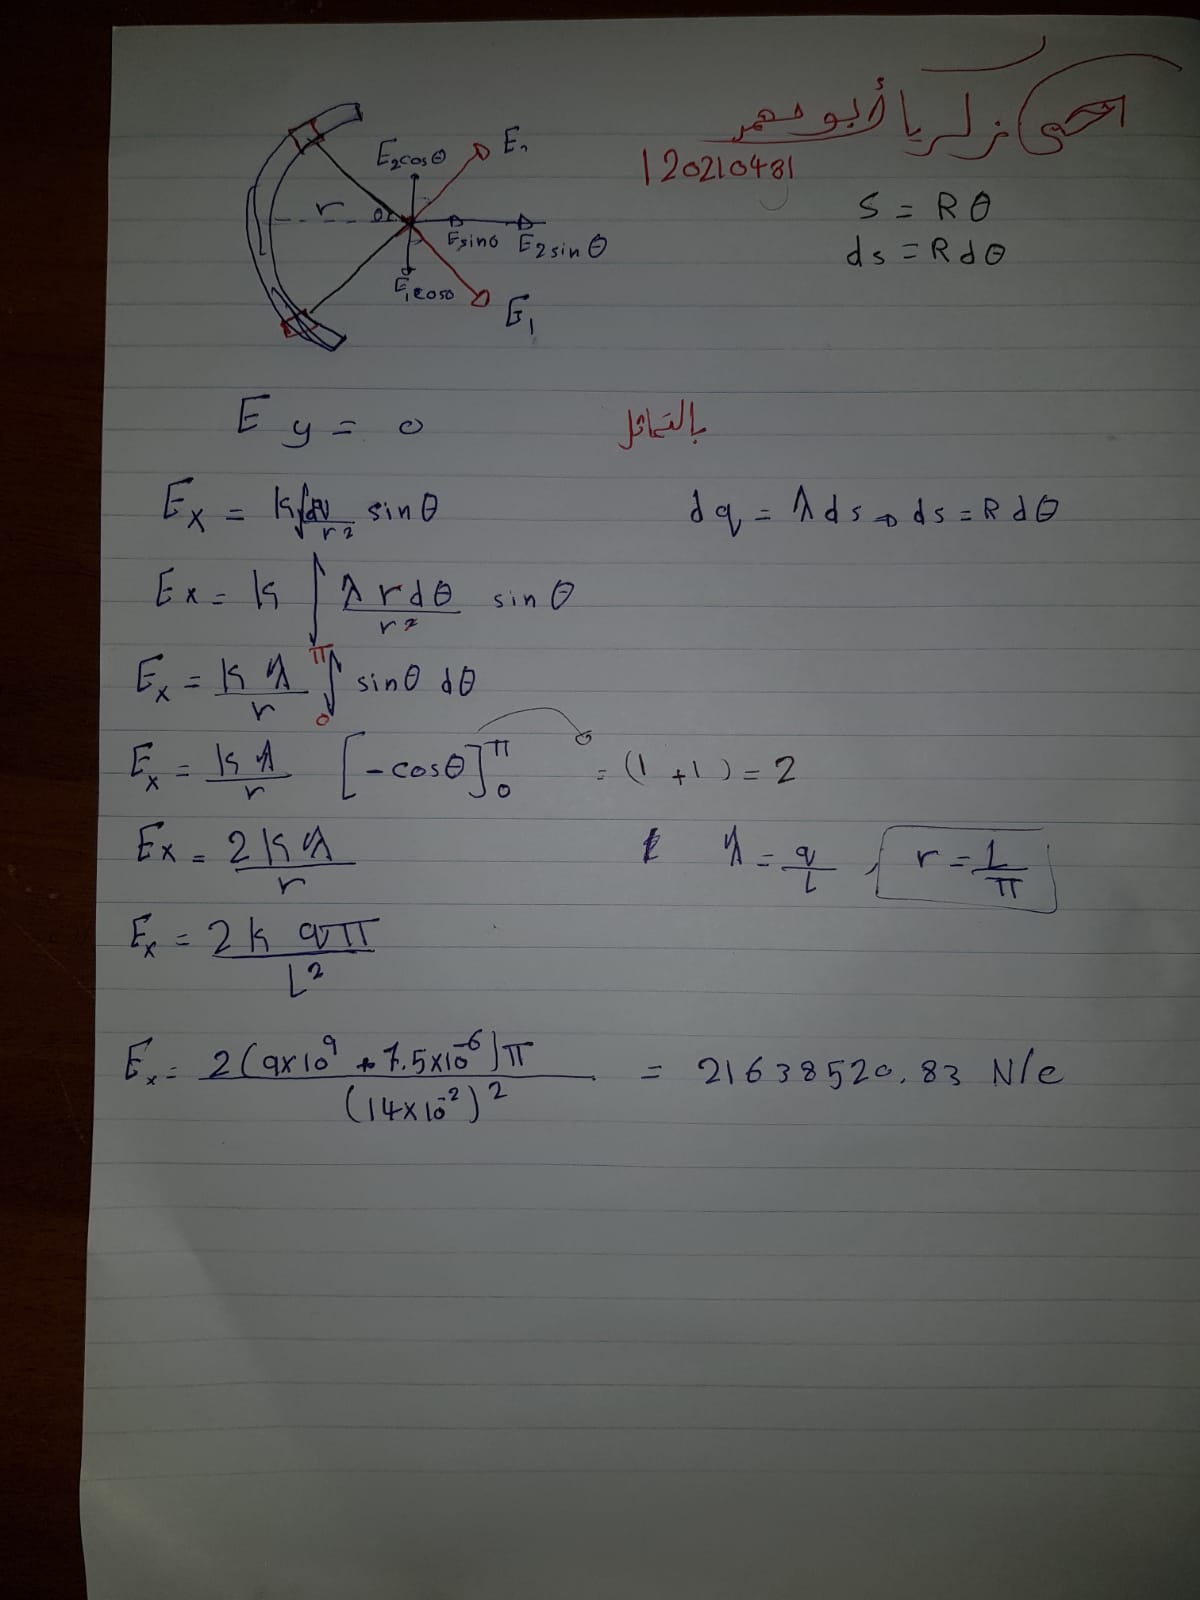 زكريا أبو معمر
120210481
S = Rθ
ds = Rdθ
E₂cosθ E₂
r θ
Esinθ E₂sinθ
E₁cosθ E₁
E y = 0 بالتماثل
Ex = k∫dq/r² sinθ dq = λds → ds = Rdθ
Ex = k ∫ λrdθ/r² sinθ
Ex = kλ/r ∫₀^π sinθ dθ
Ex = kλ/r [-cosθ]₀^π = (1+1) = 2
Ex = 2kλ/r λ = q/L , r = L/π
Ex = 2k qπ/L²
Ex = 2(9×10⁹ * 7.5×10⁻⁶)π/(14×10⁻²)² = 21638520.83 N/c